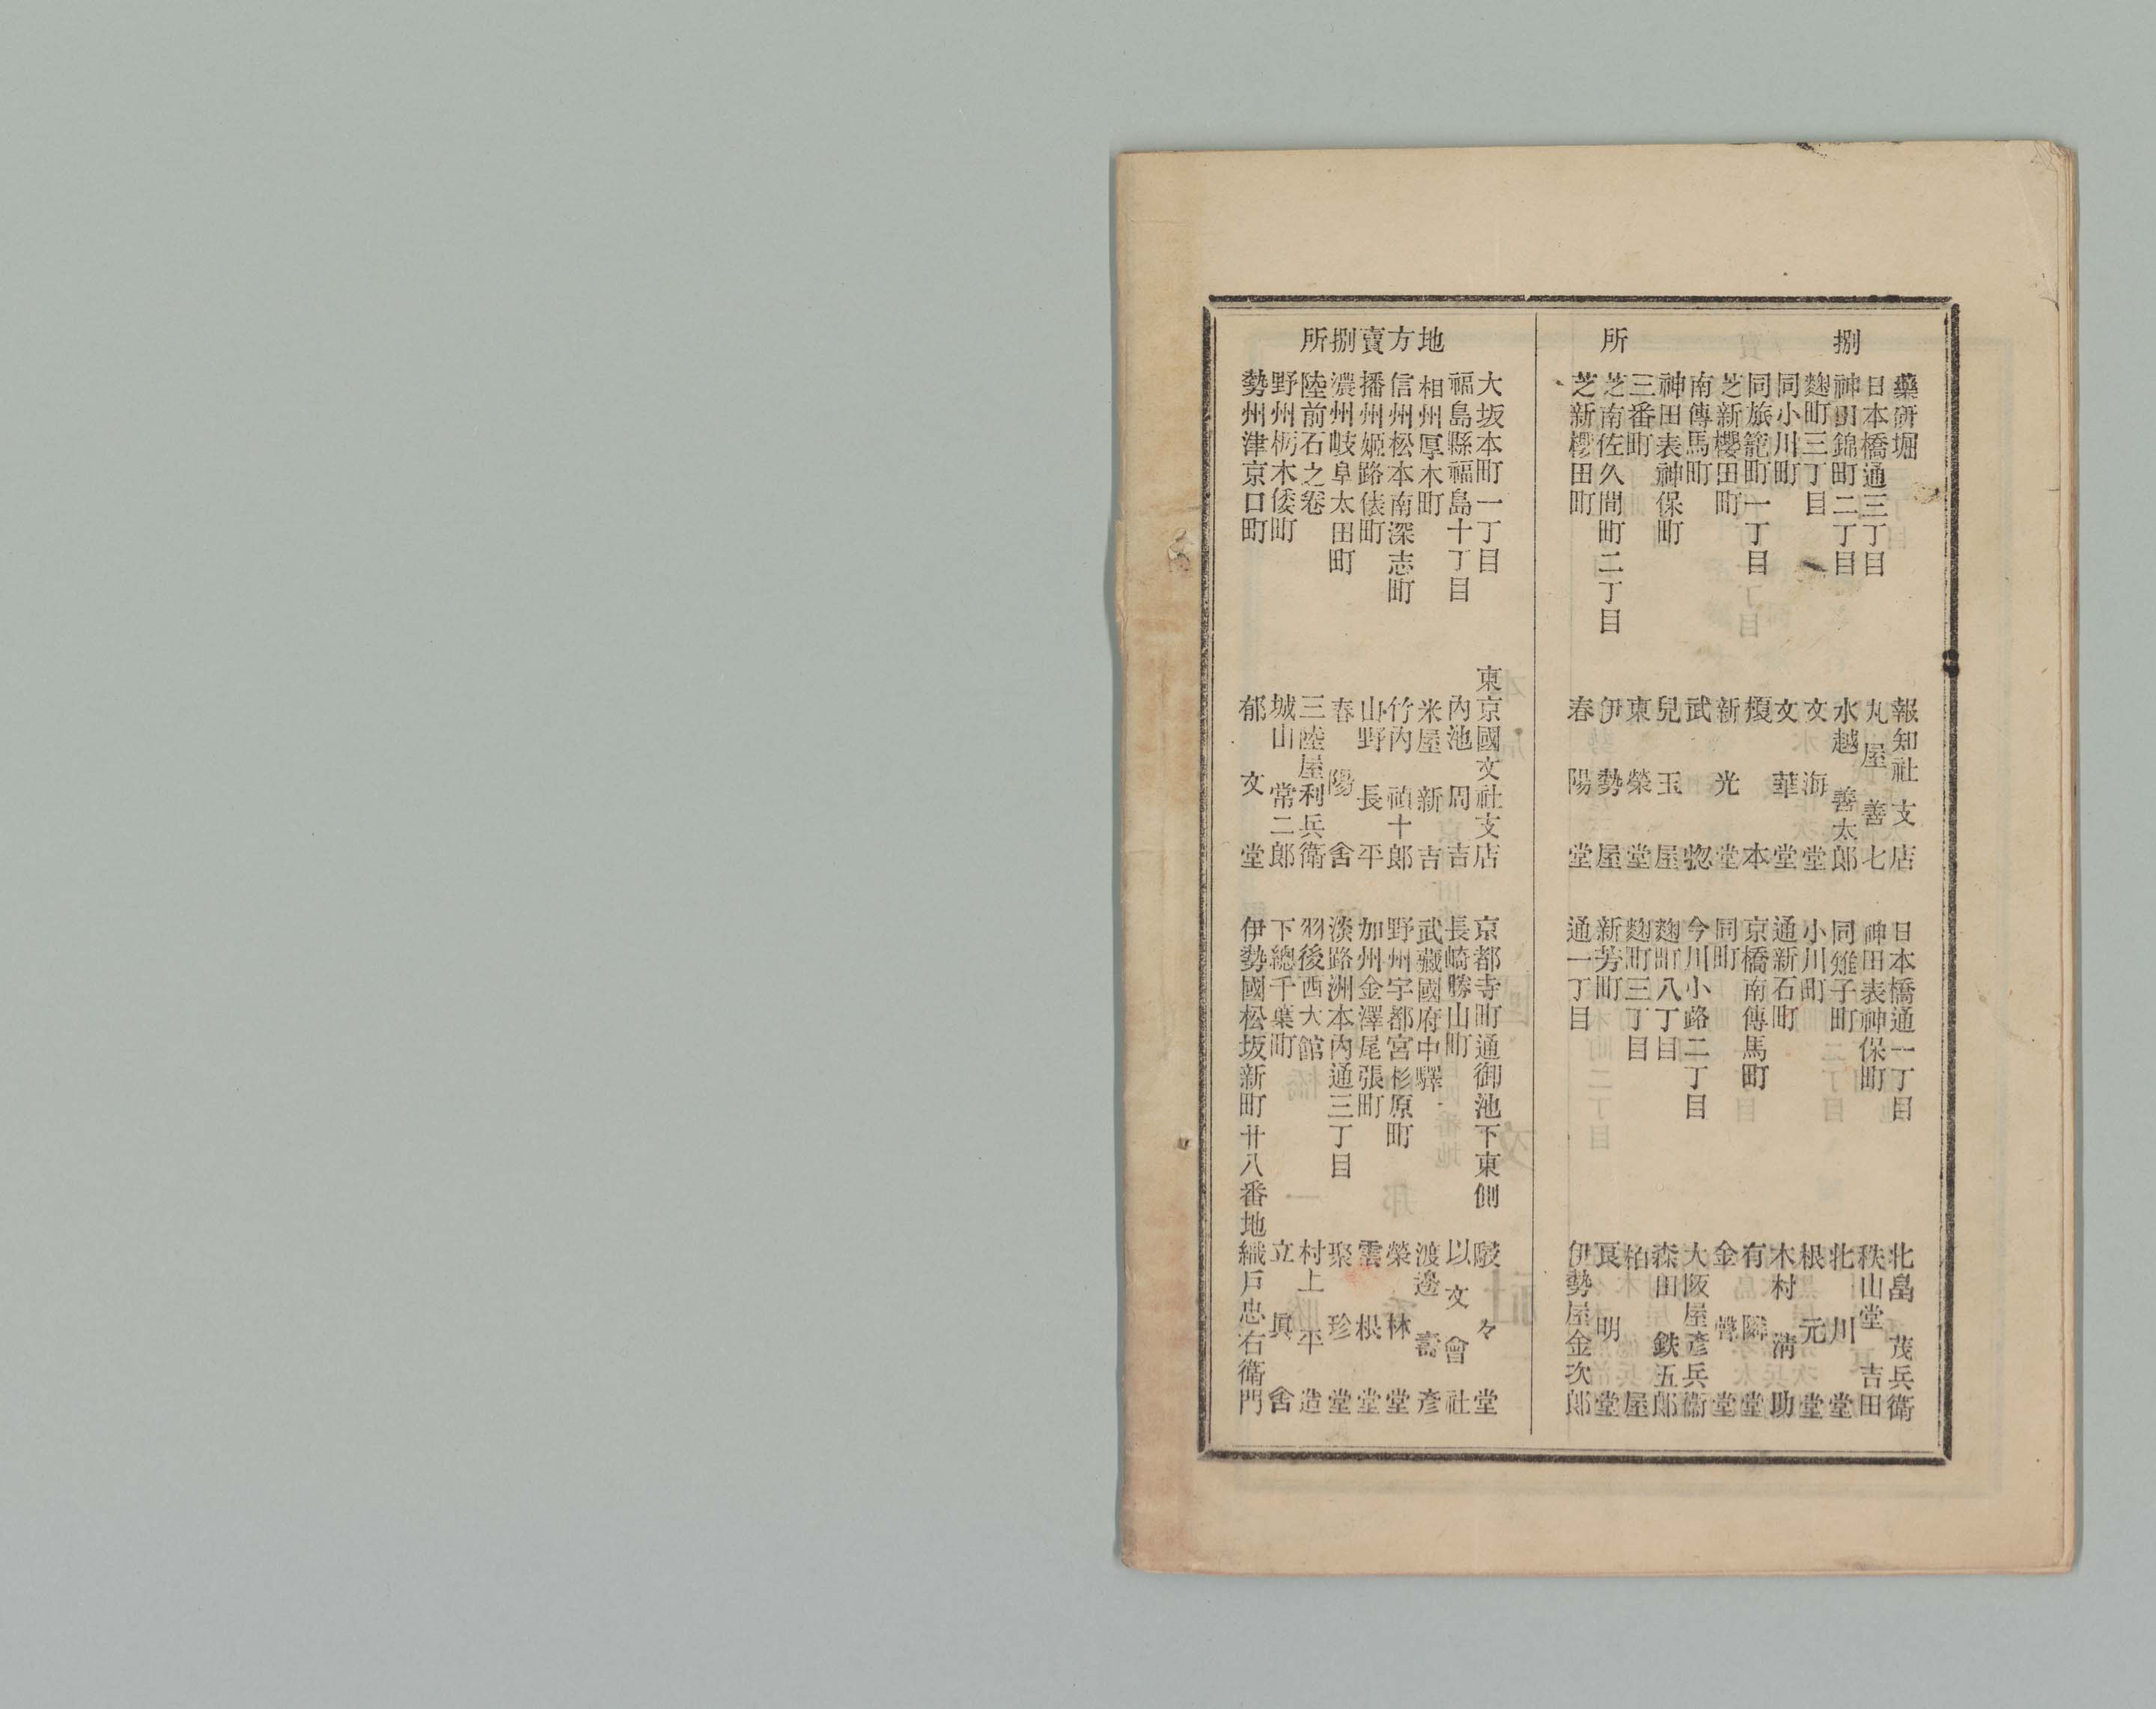 捌
所
藥研堀 報知社支店 日本橋通一丁目 北畠茂兵衛
日本橋通三丁目 丸屋善七 神田表神保町 秩山堂吉田
神田錦町二丁目 水越善太郎 同雉子町 北川堂
麴町三丁目 文海堂 小川町 根元堂
同小川町 文華堂 通新石町 木村淸助
同旅籠町一丁目 榎本 京橋南傳馬町 有隣堂
芝新櫻田町 新光堂 同町 金聲堂
南傳馬町 武惣 今川小路二丁目 大阪屋彥兵衞
神田表神保町 兒玉屋 麴町八丁目 森田鉄五郎
三番町 東榮堂 麴町三丁目 柏屋
芝南佐久間町二丁目 伊勢屋 新芳町 良明堂
芝新櫻田町 春陽堂 通一丁目 伊勢屋金次郎
地方賣捌所
大坂本町一丁目 東京國文社支店 京都寺町通御池下東側 駸々堂
福島縣福島十丁目 內池周吉 長崎勝山町 以文會社
相州厚木町 米屋新吉 武藏國府中驛 渡邊壽彥
信州松本南深志町 竹內禎十郎 野州宇都宮杉原町 榮林堂
播州姬路俵町 山野長平 加州金澤尾張町 雲根堂
濃州岐阜太田町 春陽舍 淡路洲本內通三丁目 聚珍堂
陸前石之卷 三陸屋利兵衛 羽後西大館 村上平造
野州栃木倭町 城山常二郎 下總千葉町 立眞舍
勢州津京口町 郁文堂 伊勢國松坂新町廿八番地 織戶忠右衛門